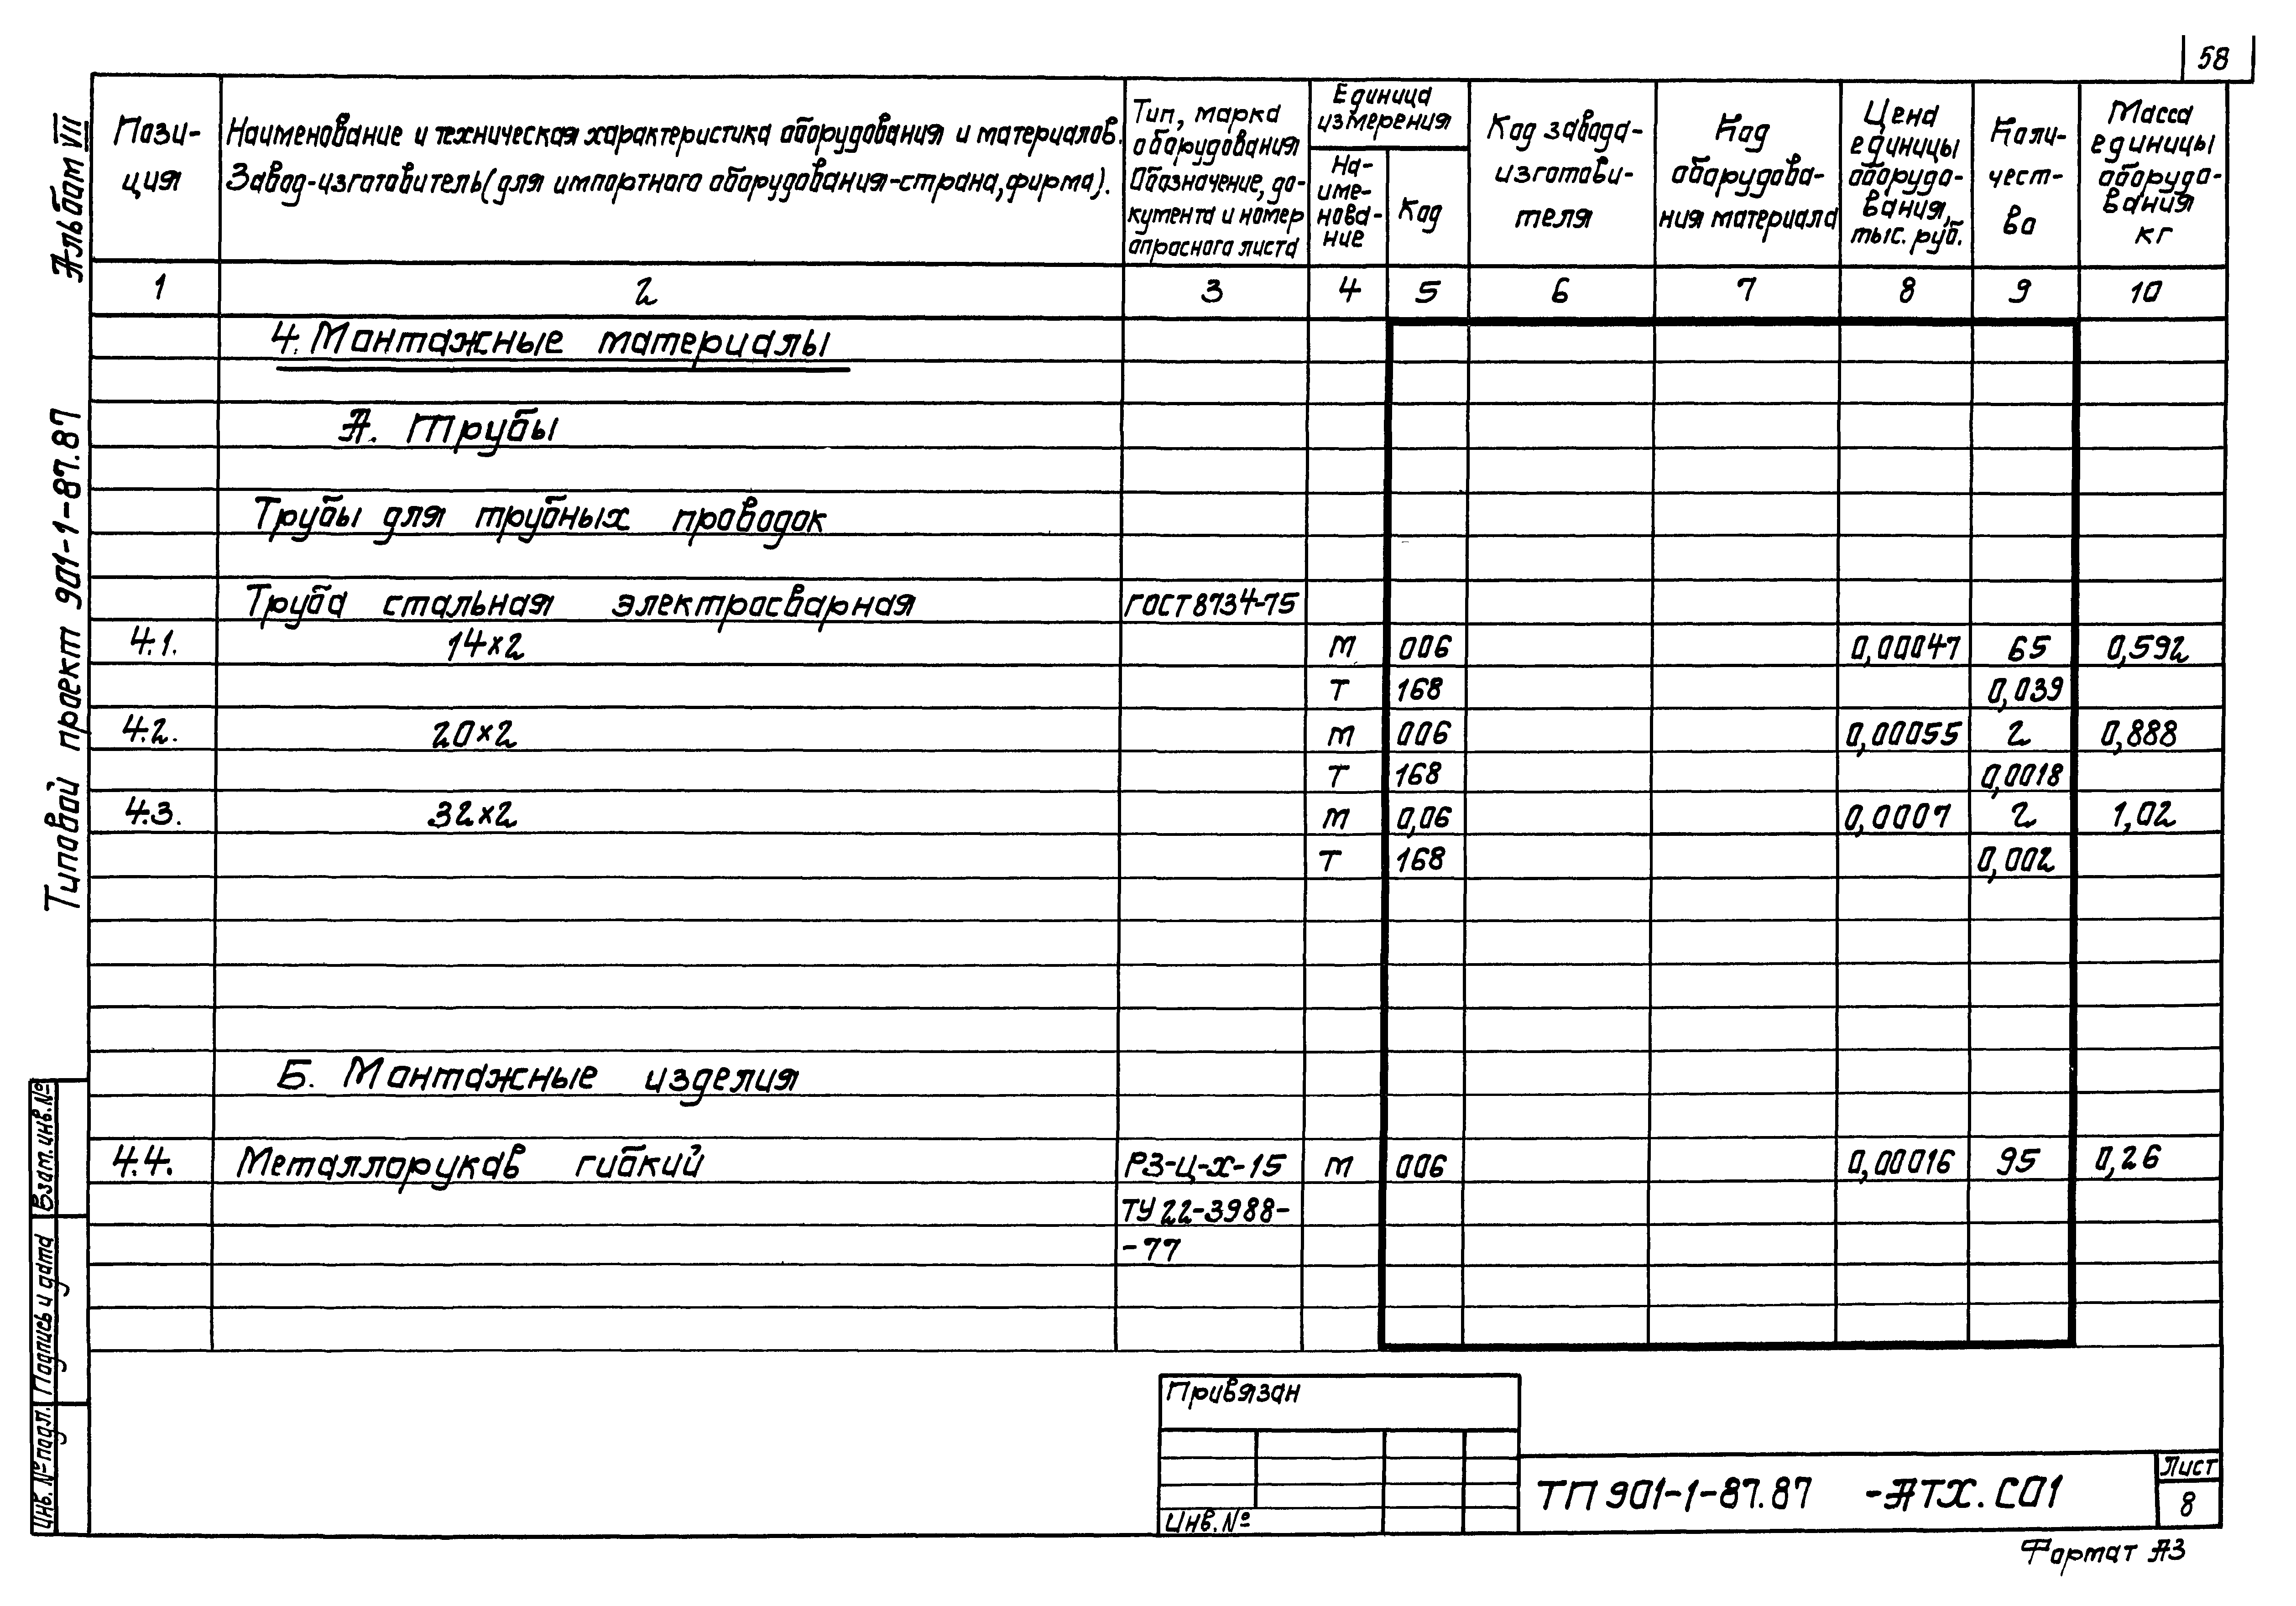 58
Альбом VII
Типовой проект 901-1-87.87
Взам. инв. №
Подпись и дата
Инв. № подл.
Пози-
ция
Наименование и техническая характеристика оборудования и материалов.
Завод-изготовитель (для импортного оборудования-страна, фирма).
Тип, марка
оборудования
Обозначение, до-
кумента и номер
опросного листа
Единица
измерения
На-
име-
нова-
ние
Код
Код завода-
изготови-
теля
Код
оборудова-
ния материала
Цена
единицы
оборудо-
вания,
тыс. руб.
Коли-
чест-
во
Масса
единицы
оборудо-
вания
кг
1 2 3 4 5 6 7 8 9 10
4. Монтажные материалы
А. Трубы
Трубы для трубных проводок
Труба стальная электросварная ГОСТ 8734-75
4.1. 14×2 м 006 0,00047 65 0,592
т 168 0,039
4.2. 20×2 м 006 0,00055 2 0,888
т 168 0,0018
4.3. 32×2 м 0,06 0,0007 2 1,02
т 168 0,002
Б. Монтажные изделия
4.4. Металлорукав гибкий РЗ-Ц-Х-15 м 006 0,00016 95 0,26
ТУ 22-3988-
-77
Привязан
Инв. №
ТП 901-1-87.87 -АТХ. СО1
Лист
8
Формат А3